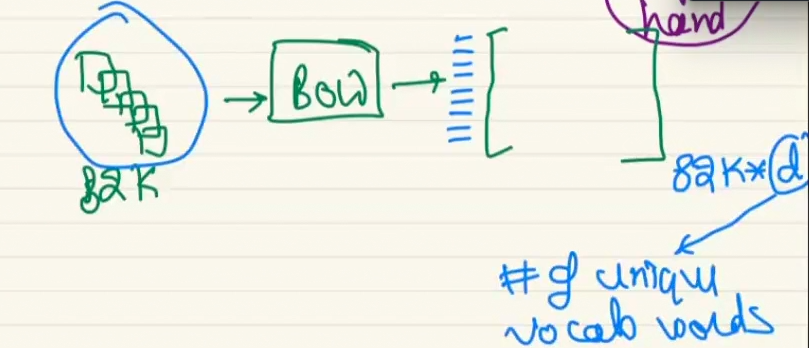 hand
BOW
82K
82K*d
# of unique
vocab words